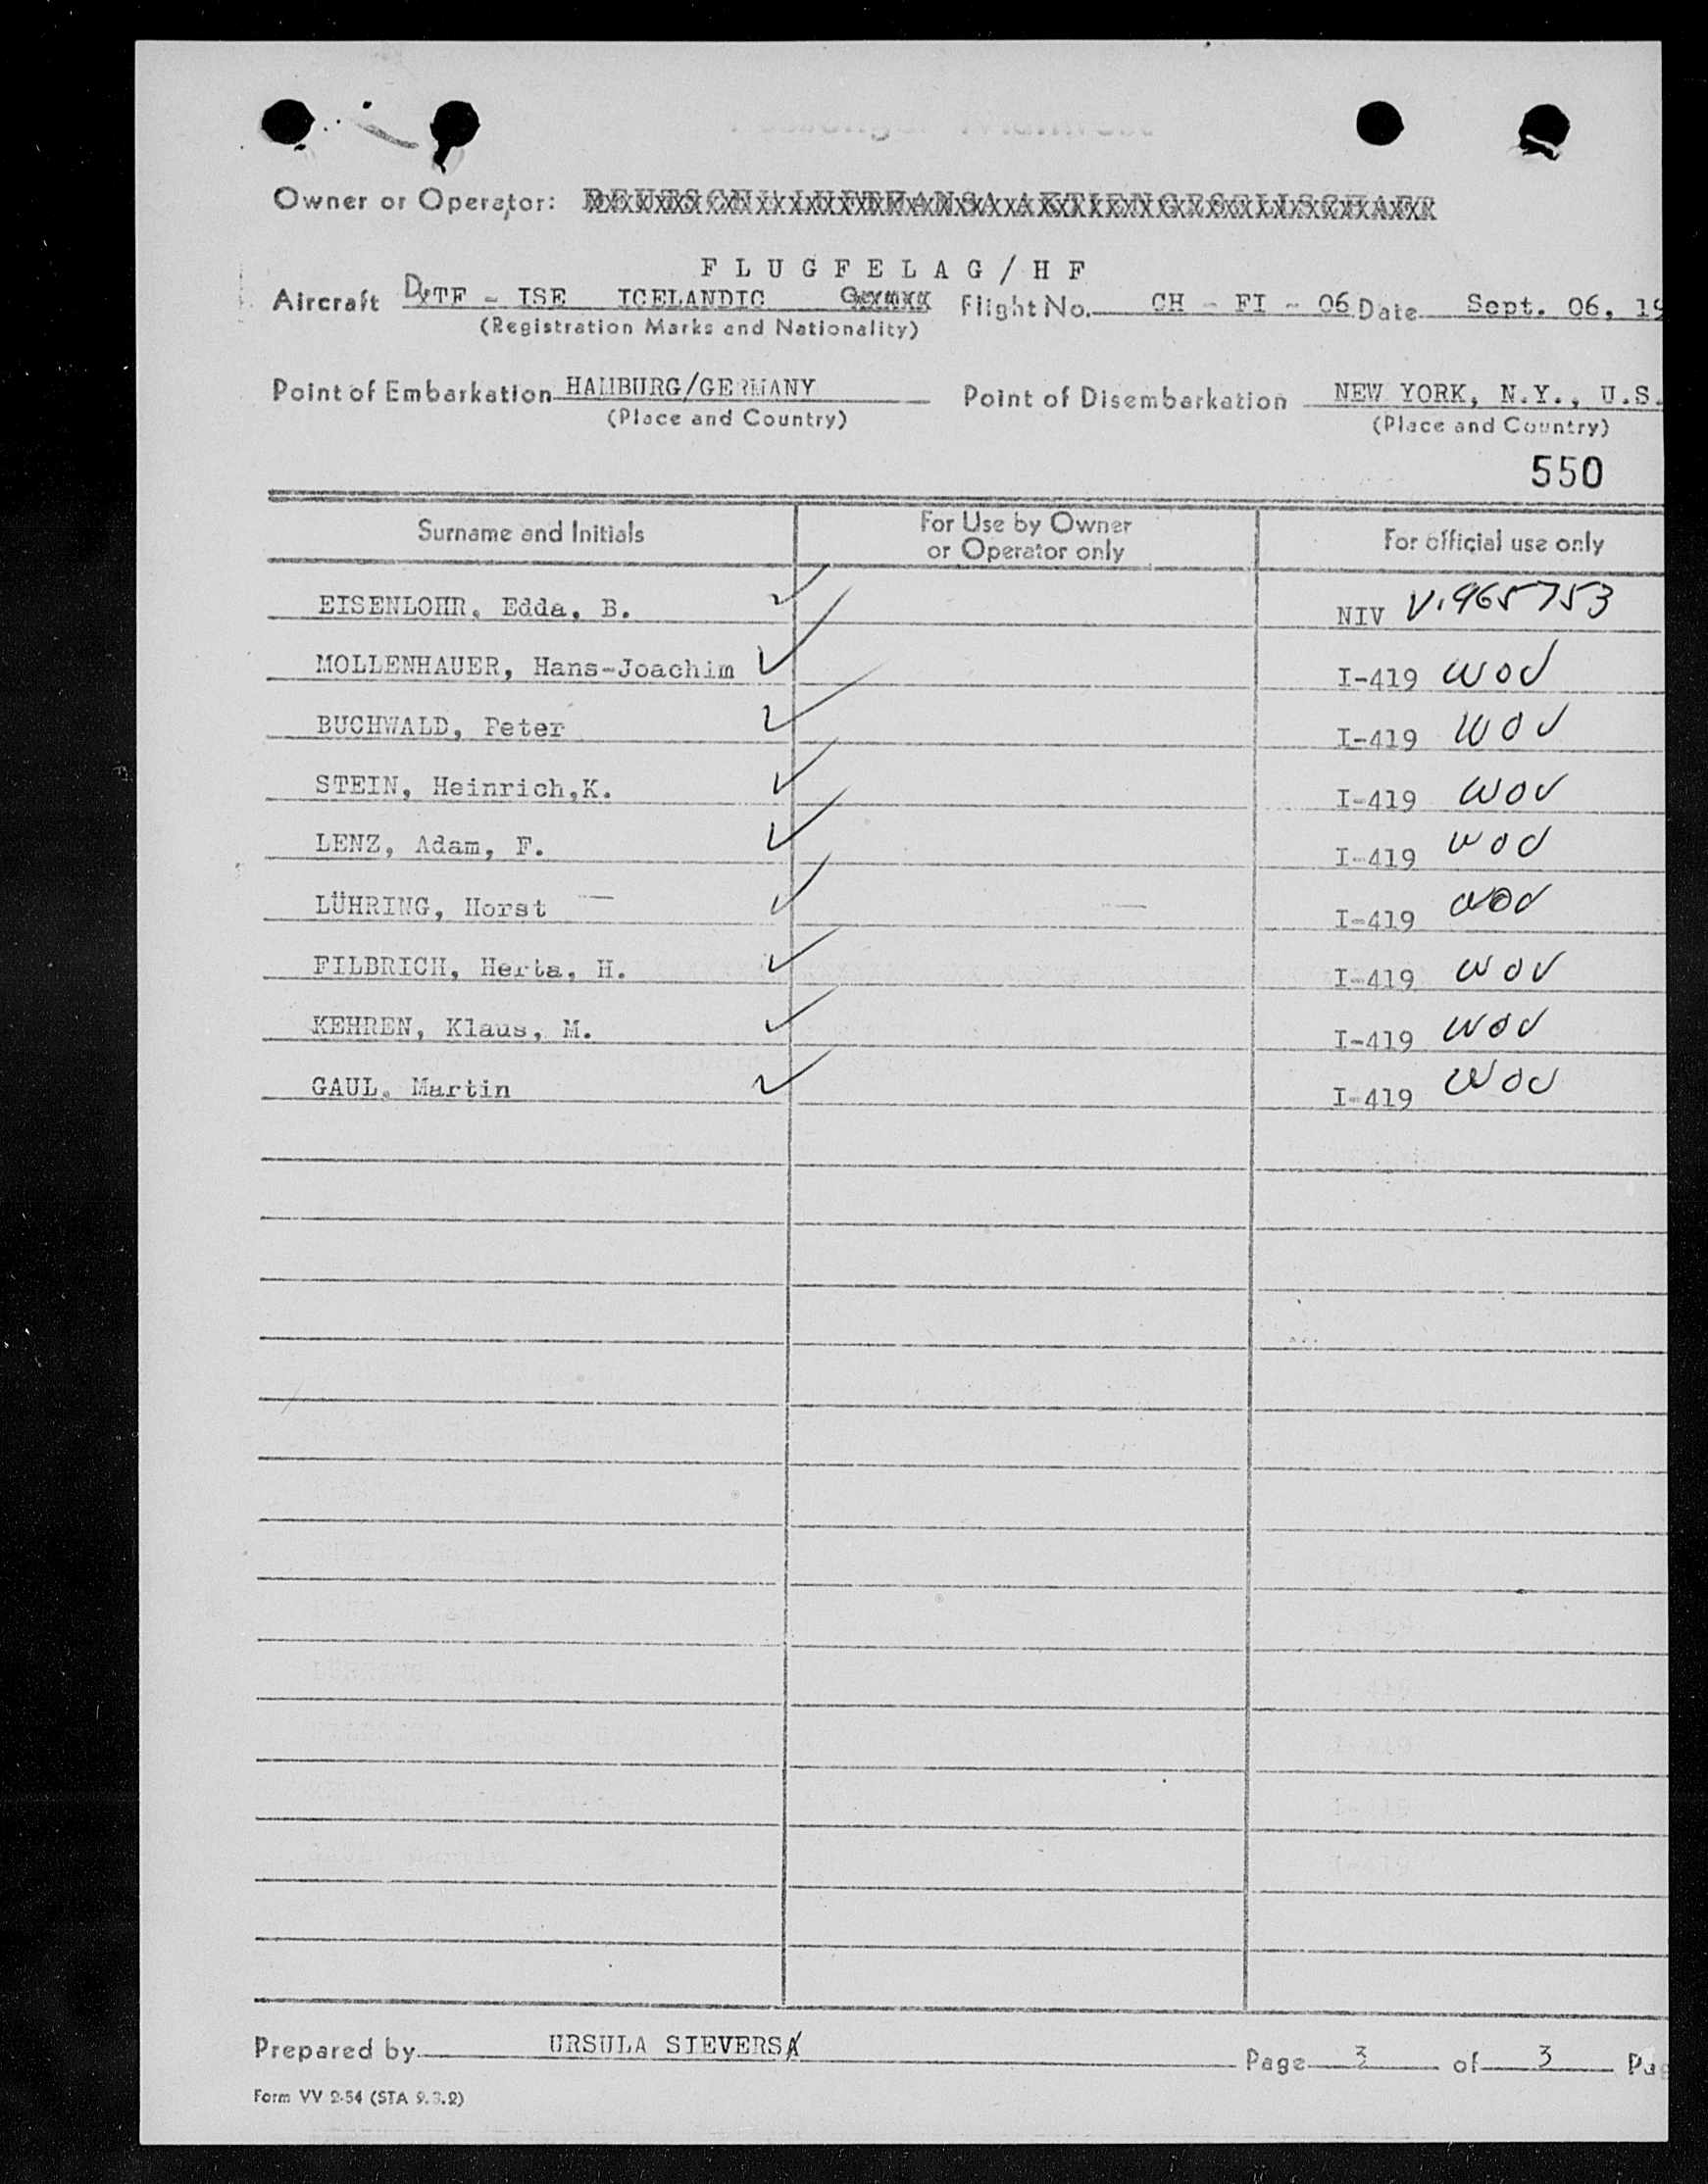 Passenger Manifest
Owner or Operator: DEUTSCHE LUFTHANSA AKTIENGESELLSCHAFT
FLUGFELAG/HF
Aircraft TF - ISE ICELANDIC Flight No. CH - FI - 06 Date Sept. 06, 19
(Registration Marks and Nationality)
Point of Embarkation HAMBURG/GERMANY Point of Disembarkation NEW YORK, N.Y., U.S.
(Place and Country) (Place and Country)
550
Surname and Initials For Use by Owner or Operator only For official use only
EISENLOHR, Edda, B. NIV V.965753
MOLLENHAUER, Hans-Joachim I-419 wov
BUCHWALD, Peter I-419 wov
STEIN, Heinrich,K. I-419 wov
LENZ, Adam, F. I-419 wov
LÜHRING, Horst I-419 wov
FILBRICH, Herta, H. I-419 wov
KEHREN, Klaus, M. I-419 wov
GAUL, Martin I-419 wov
Prepared by URSULA SIEVERS Page 3 of 3 Pag
Form VV 2-54 (STA 9.3.2)